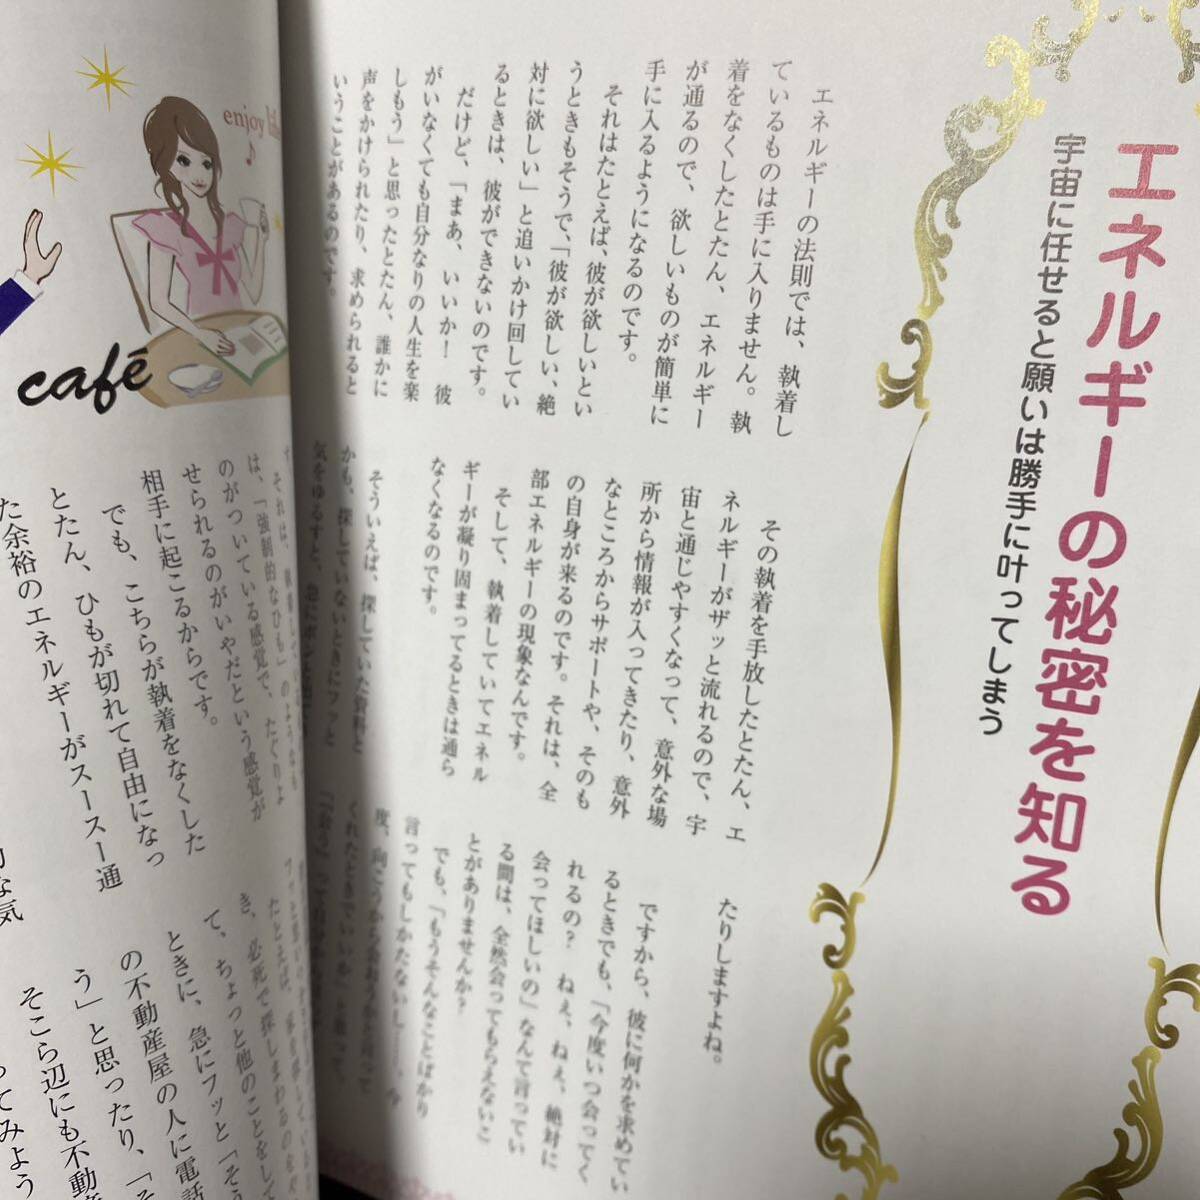 エネルギーの秘密を知る
宇宙に任せると願いは勝手に叶ってしまう
エネルギーの法則では、執着し
ているものは手に入りません。執
着をなくしたとたん、エネルギー
が通るので、欲しいものが簡単に
手に入るようになるのです。
それはたとえば、彼が欲しいとい
うときもそうで、「彼が欲しい、絶
対に欲しい」と追いかけ回してい
るときは、彼ができないのです。
だけど、「まあ、いいか! 彼
がいなくても自分なりの人生を楽
しもう」と思ったとたん、誰かに
声をかけられたり、求められると
いうことがあるのです。
その執着を手放したとたん、エ
ネルギーがザッと流れるので、宇
宙と通じやすくなって、意外な場
所から情報が入ってきたり、意外
なところからサポートや、そのも
の自身が来るのです。それは、全
部エネルギーの現象なんです。
そして、執着していてエネル
ギーが凝り固まってるときは通ら
なくなるのです。
そういえば、探していた資料と
かも、探していないときにフッと
気をゆるすと、急にポンと
たりしますよね。
ですから、彼に何かを求めてい
るときでも、「今度いつ会ってく
れるの? ねぇ、ねぇ、絶対に
会ってほしいの」なんて言ってい
る間は、全然会ってもらえないこ
とがありませんか?
でも、「もうそんなことばかり
言ってもしかたないし……、今
度、向こうから会おうかと言って
くれたときでいいか」と思って、
enjoy
café
す。それは、執着して
は、「強制的なひも」のようなも
のがついている感覚で、たぐりよ
せられるのがいやだという感覚が
相手に起こるからです。
でも、こちらが執着をなくした
とたん、ひもが切れて自由になっ
た余裕のエネルギーがスースー通
な気
たとえば、家を探して
き、必死で探しまわるのをや
て、ちょっと他のことをして
ときに、急にフッと「そう
の不動産屋の人に電話
う」と思ったり、「そ
そこら辺にも不動産
ってみよう